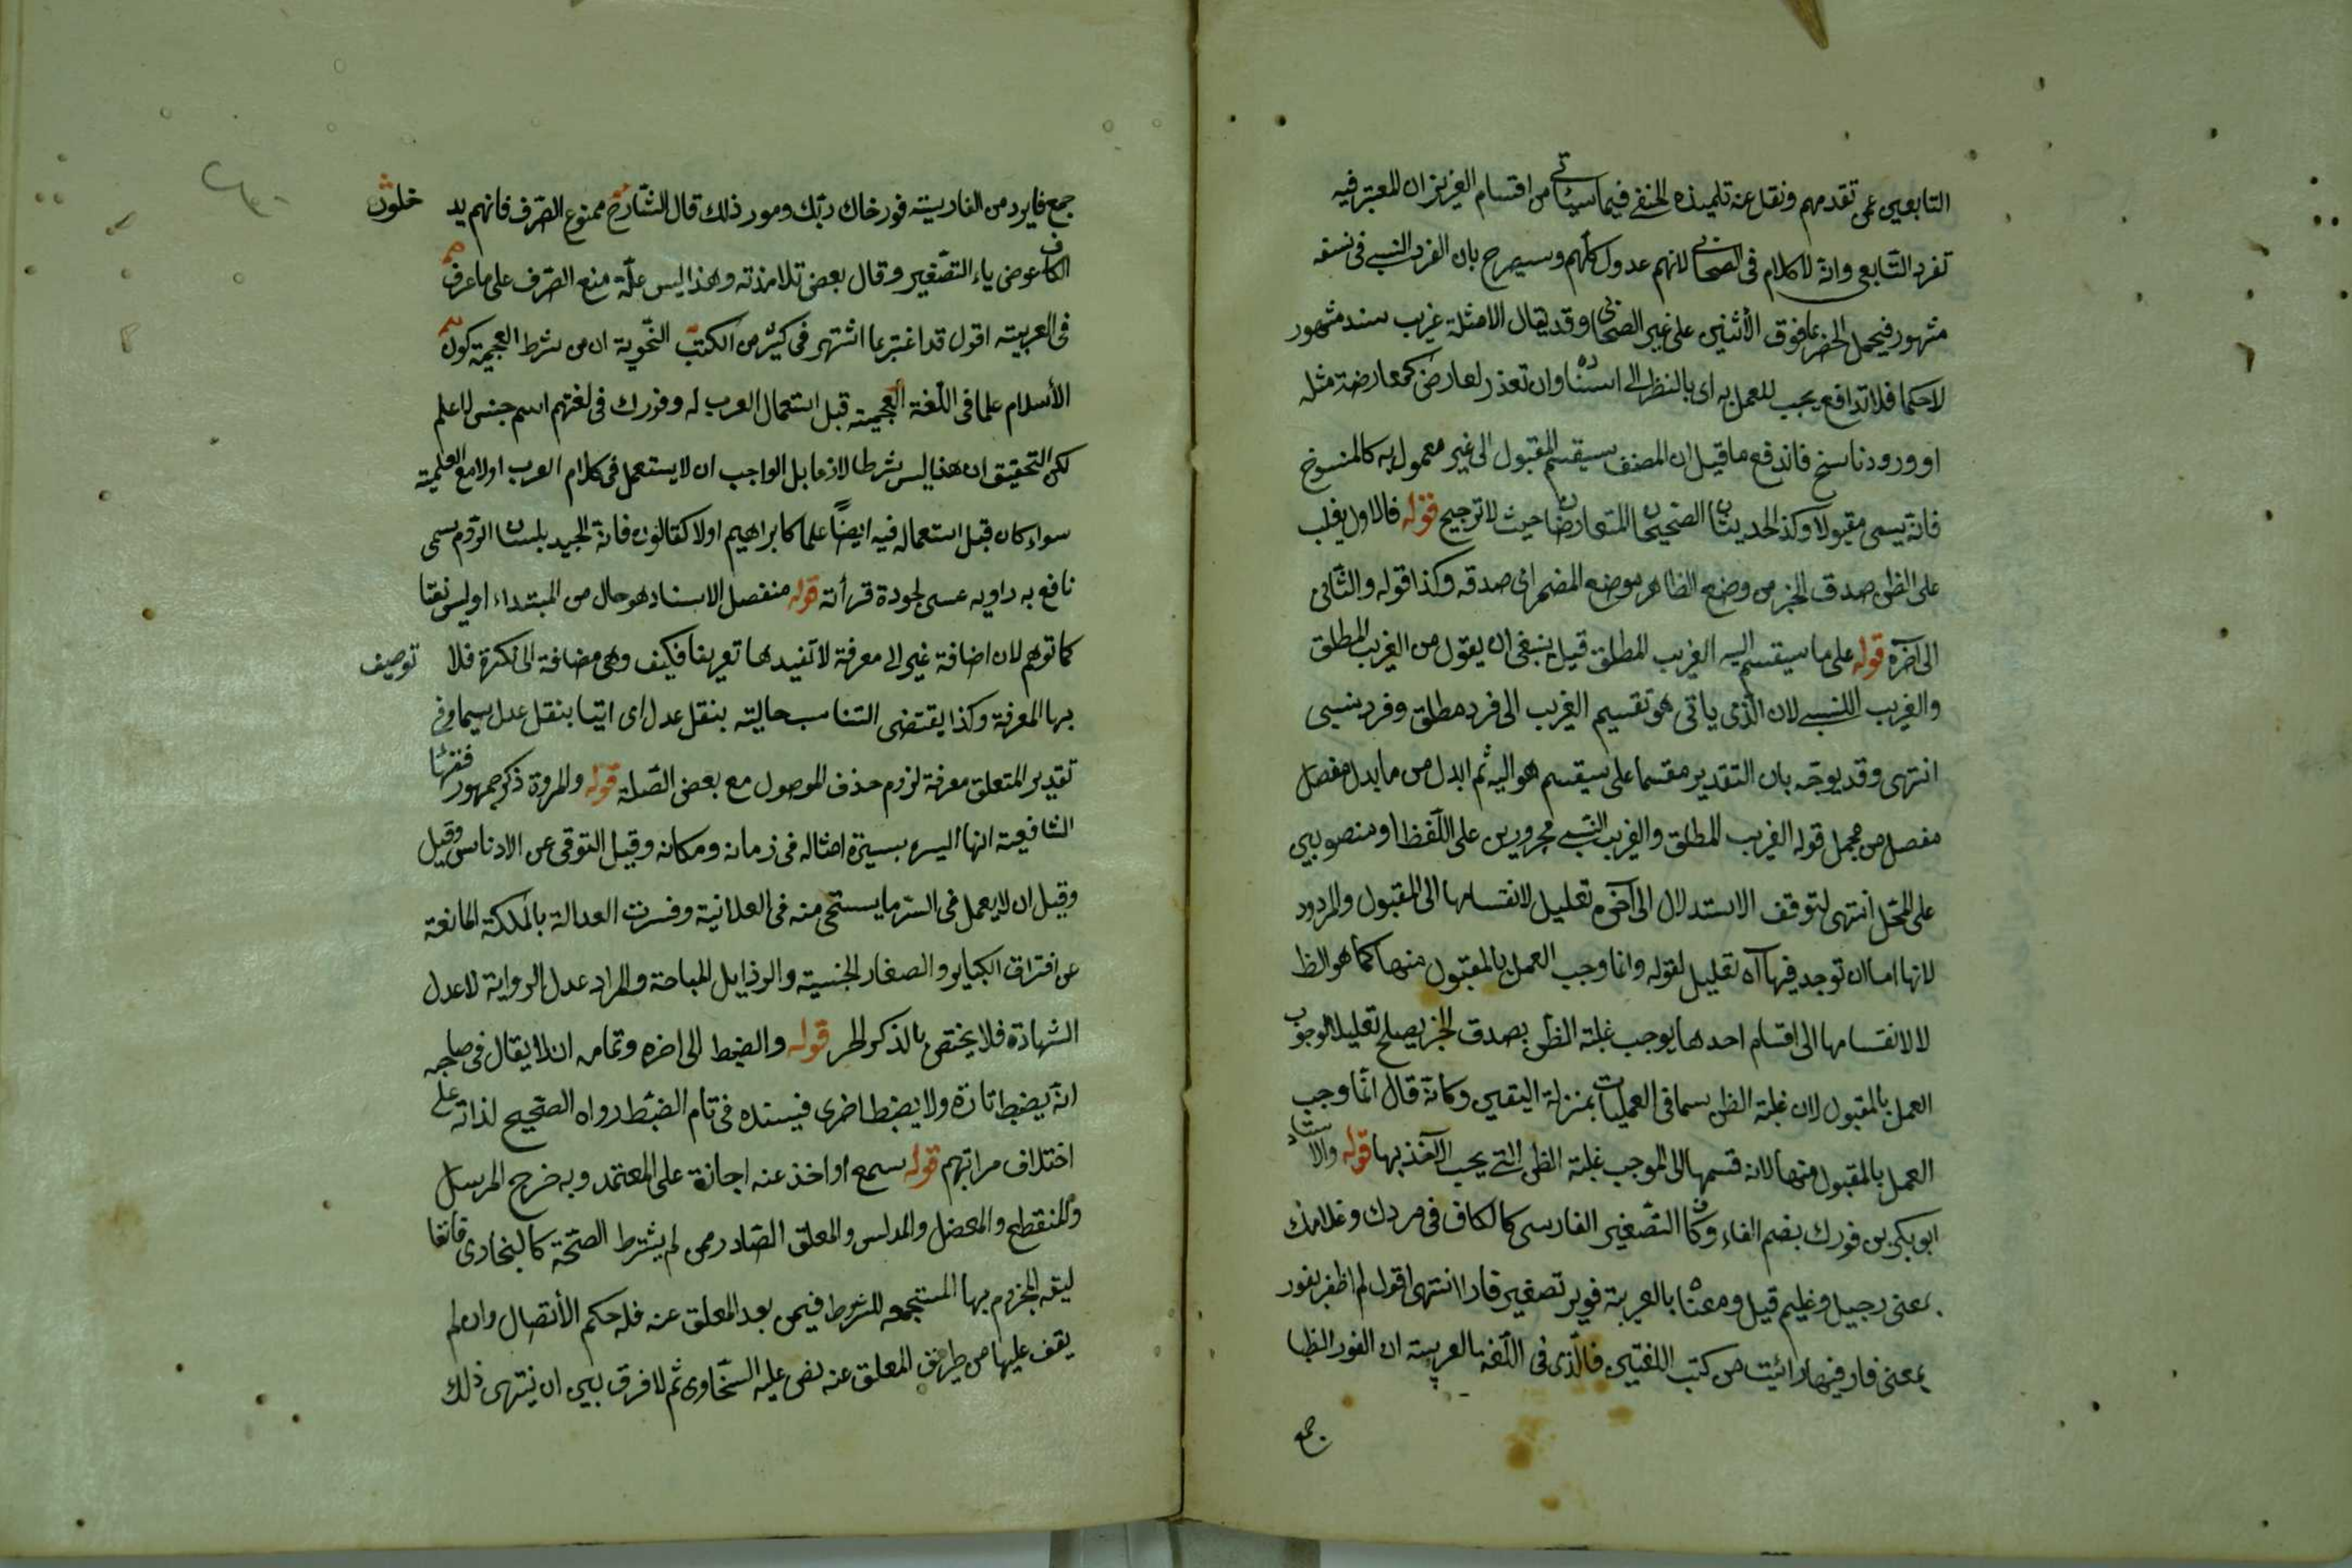 التابعين عمن تقدمهم ونقل عنه تلميذه الحنفى فيما سيأتى من اقسام العزيز ان المعتبر فيه
تفرد التابعى وانه لا كلام فى الصحابى لانهم عدول كلهم وسيصرح بان الفرد النسبى فى نسفه
مشهور فيحمل الحضر بما فوق الأثنين على غير الصحابى وقد يقال الامثلة غريب سند مشهور
لا حكما فلا تدافع يجب للعمل به اى بالنظر الى اسناده وان تعذر لعارض كمعارضة مثله
او ورود ناسخ فاندفع ما قيل ان المصنف سيقسم المقبول الى غير معمول به كالمنسوخ
فانه يسمى مقبولا وكذا الحديثان الصحيحان المتعارضان حيث لا ترجيح قوله فالاول يغلب
على الظن صدق الخبر من وضع الظاهر موضع المضمر اى صدقه وكذا قوله والثانى
الى آخره قوله على ما سيقسم اليه الغريب المطلق قيل ينبغى ان يقول من الغريب المطلق
والغريب النسبى لان الذى ياتى هو تقسيم الغريب الى فرد مطلق وفرد نسبى
انتهى وقد يوجه بان التقدير مقسما على سيقسم هو اليه ثم ابدل من ما بدل مفصل
مفصل من مجمل قوله الغريب المطلق والغريب النسبى مجرورين على اللفظ او منصوبين
على المحل انتهى لتوقف الاستدلال الى آخره تعليل لانقسامها الى المقبول والمردود
لانها اما ان توجد فيها آه تعليل لقوله وانما وجب العمل بالمقبول منها كما هو الظ
لا لانقسامها الى اقسام احدها يوجب غلبة الظن بصدق الخبر يصلح تعليلا لوجوب
العمل بالمقبول لان غلبة الظن سيما فى العمليات بمنزلة اليقين وكانه قال انما وجب
العمل بالمقبول منها لانه قسمها الى الموجب غلبة الظن التى يجب الاخذ بها قوله والاستاد
ابو بكر بن فورك بضم الفاء وكاف التصغير الفارسى كالكاف فى مردك وغلامك
بمعنى رجيل وغليم قيل ومعناه بالعربية فوير تصغير فار انتهى اقول لم اظفر بفور
بمعنى فار فيها رائيت من كتب اللغتين فالذى فى اللغة العربية ان الفور الظبا
جمع
جمع فايرد من الفارسية فور خاك رنك ومور ذلك قال الشارح ممنوع الصرف فانهم يد خلون
الكاف عوض ياء التصغير وقال بعض تلامذته وهذا ليس علة منع الصرف على ما عرف
فى العربية اقول قد اغتبر بما اشتهر فى كثير من الكتب النحوية ان من شرط العجمة كون
الأسلام علما فى اللغة العجمية قبل استعمال العرب له وفورك فى لغتهم اسم جنس لا علم
لكن التحقيق ان هذا ليس شرطا لازما بل الواجب ان لا يستعمل فى كلام العرب اولا مع العلمية
سواء كان قبل استعماله فيه ايضاً علما كابراهيم اولا كقالون فانه الجيد بلسان الروم سمى
نافع به راويه عيسى لجودة قرأته قوله متصل الاسناد هو حال من المبتداء او ليس نعتا
كما توهم لان اضافة غير الى معرفة لا تفيدها تعريفا فكيف وهى مضافة الى نكرة فلا توصيف
بها المعرفة وكذا يقتضى التناسب حالية بنقل عدل اى اتيا بنقل عدل سيما وفى
تقدير المتعلق معرفة لزوم حذف الموصول مع بعض الصلة قوله والمروة ذكر جمهور فقهاء
الشافعية انها السيره بسيرة امثاله فى زمانه ومكانه وقيل التوقى عن الادناس وقيل
وقيل ان لا يعمل فى السر ما يستحى منه فى العلانية وفسرت العدالة بالملكة المانعة
عن اقتراف الكباير والصغار الخسيسة والرذايل المباحة والمراد عدل الرواية لا عدل
الشهادة فلا يختص بالذكر الحر قوله والضبط الى اخره وتمامه ان لا يقال فى صاحبه
انه يضبط تارة ولا يضبط اخرى فيسنده فى تام الضبط رواه الصحيح لذاته على
اختلاف مراتبهم قوله سمع او اخذ عنه اجازة على المعتمد وبه خرج المرسل
والمنقطع والمعضل والمدلس والمعلق الصادر ممن لم يشترط الصحة كالبخارى فانها
ليقه المجزوم بها المستجمعه للشروط فيمن بعد المعلق عنه فله حكم الأتصال وان لم
يقف عليها من طريق المعلق عنه نص عليه السخاوى ثم لا فرق بين ان ينتهى ذلك